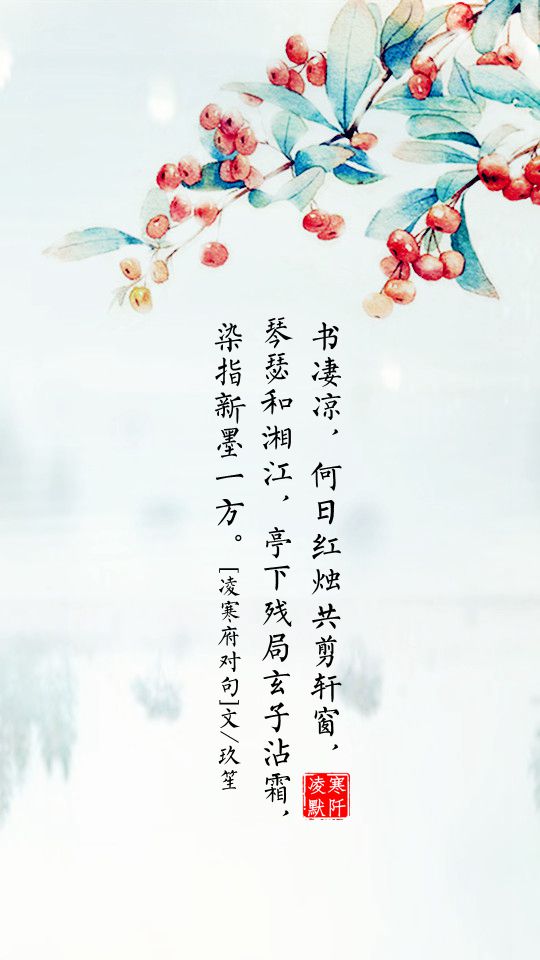 书凄凉，何日红烛共剪轩窗，
琴瑟和湘江，亭下残局玄子沾霜，
染指新墨一方。[凌寒府对句]文/玖笙
寒阡
凌默